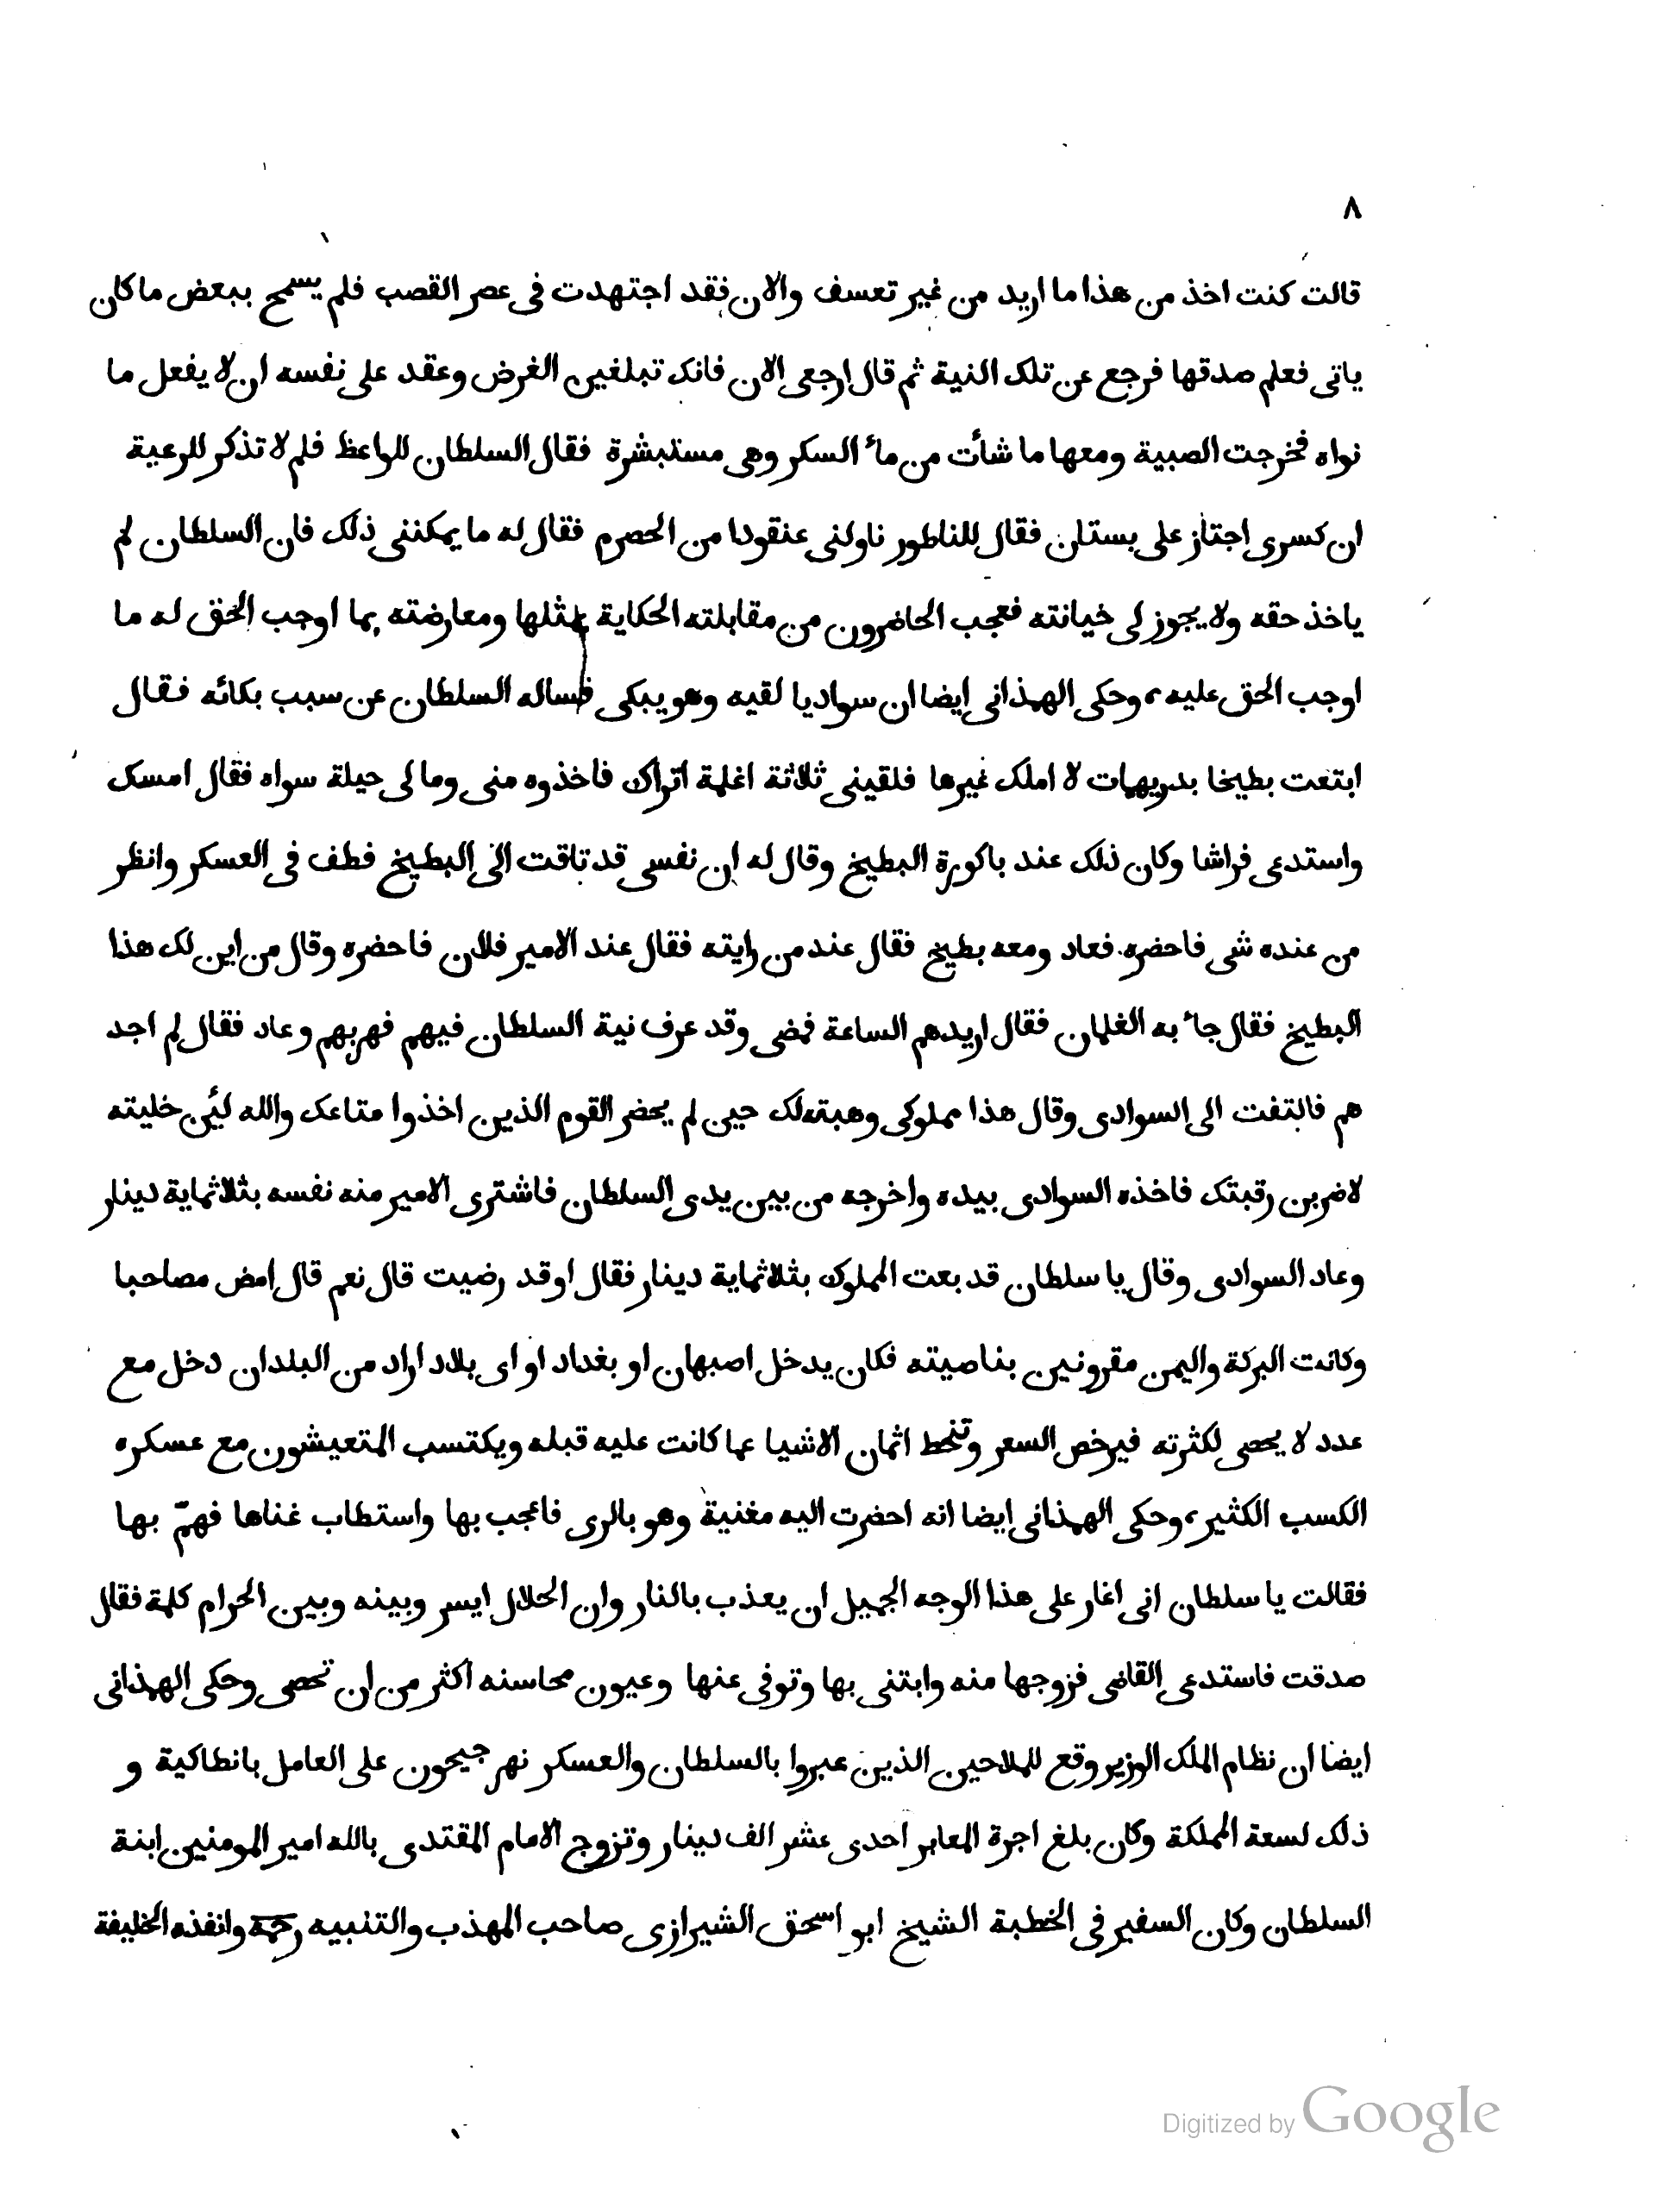 ٨
قالت كنت اخذ من هذا ما اريد من غير تعسف والان فقد اجتهدت فى عصر القصب فلم يسمح ببعض ما كان
ياتى فعلم صدقها فرجع عن تلك النية ثم قال ارجعى الان فانك تبلغين الغرض وعقد على نفسه ان لا يفعل ما
نواه فخرجت الصبية ومعها ما شأت من مأ السكر وهى مستبشرة فقال السلطان للواعظ فلم لا تذكر للرعية
ان كسرى اجتاز على بستان فقال للناطور ناولنى عنقودا من الحصرم فقال له ما يمكننى ذلك فان السلطان لم
ياخذ حقه ولا يجوز لى خيانته فعجب الحاضرون من مقابلته الحكاية بمثلها ومعارضته بما اوجب الحق له ما
اوجب الحق عليه، وحكى الهمذانى ايضا ان سواديا لقيه وهو يبكى فساله السلطان عن سبب بكائه فقال
ابتعت بطيخا بدريهمات لا املك غيرها فلقينى ثلاثة اغلمة اتراك فاخذوه منى وما لى حيلة سواه فقال امسك
واستدعى فراشا وكان ذلك عند باكورة البطيخ وقال له ان نفسى قد تاقت الى البطيخ فطف فى العسكر وانظر
من عنده شى فاحضره فعاد ومعه بطيخ فقال عند من رايته فقال عند الامير فلان فاحضره وقال من اين لك هذا
البطيخ فقال جأ به الغلمان فقال اريدهم الساعة فمضى وقد عرف نية السلطان فيهم فهربهم وعاد فقال لم اجد
هم فالتفت الى السوادى وقال هذا مملوكى وهبته لك حين لم يحضر القوم الذين اخذوا متاعك والله لئن خليته
لاضربن رقبتك فاخذه السوادى بيده واخرجه من بين يدى السلطان فاشترى الامير منه نفسه بثلاثماية دينار
وعاد السوادى وقال يا سلطان قد بعت المملوك بثلاثماية دينار فقال اوقد رضيت قال نعم قال امض مصاحبا
وكانت البركة واليمن مقرونين بناصيته فكان يدخل اصبهان او بغداد او اى بلاد اراد من البلدان دخل مع
عدد لا يحصى لكثرته فيرخص السعر وتنحط اثمان الاشيا عما كانت عليه قبله ويكتسب المتعيشون مع عسكره
الكسب الكثير، وحكى الهمذانى ايضا انه احضرت اليه مغنية وهو بالرى فاعجب بها واستطاب غناها فهمّ بها
فقالت يا سلطان انى اغار على هذا الوجه الجميل ان يعذب بالنار وان الحلال ايسر وبينه وبين الحرام كلمة فقال
صدقت فاستدعى القاضى فزوجها منه وابتنى بها وتوفى عنها وعيون محاسنه اكثر من ان تحصى وحكى الهمذانى
ايضا ان نظام الملك الوزير وقع للملاحين الذين عبروا بالسلطان والعسكر نهر جيحون على العامل بانطاكية و
ذلك لسعة المملكة وكان بلغ اجرة المعابر احدى عشر الف دينار وتزوج الامام المقتدى بالله امير المومنين ابنة
السلطان وكان السفير فى الخطبة الشيخ ابو اسحق الشيرازى صاحب المهذب والتنبيه رحمه وانفذه الخليفة
Digitized by Google